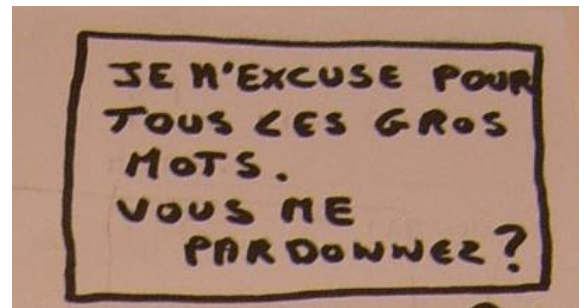 JE M'EXCUSE POUR
TOUS CES GROS
MOTS.
VOUS ME
PARDONNEZ?